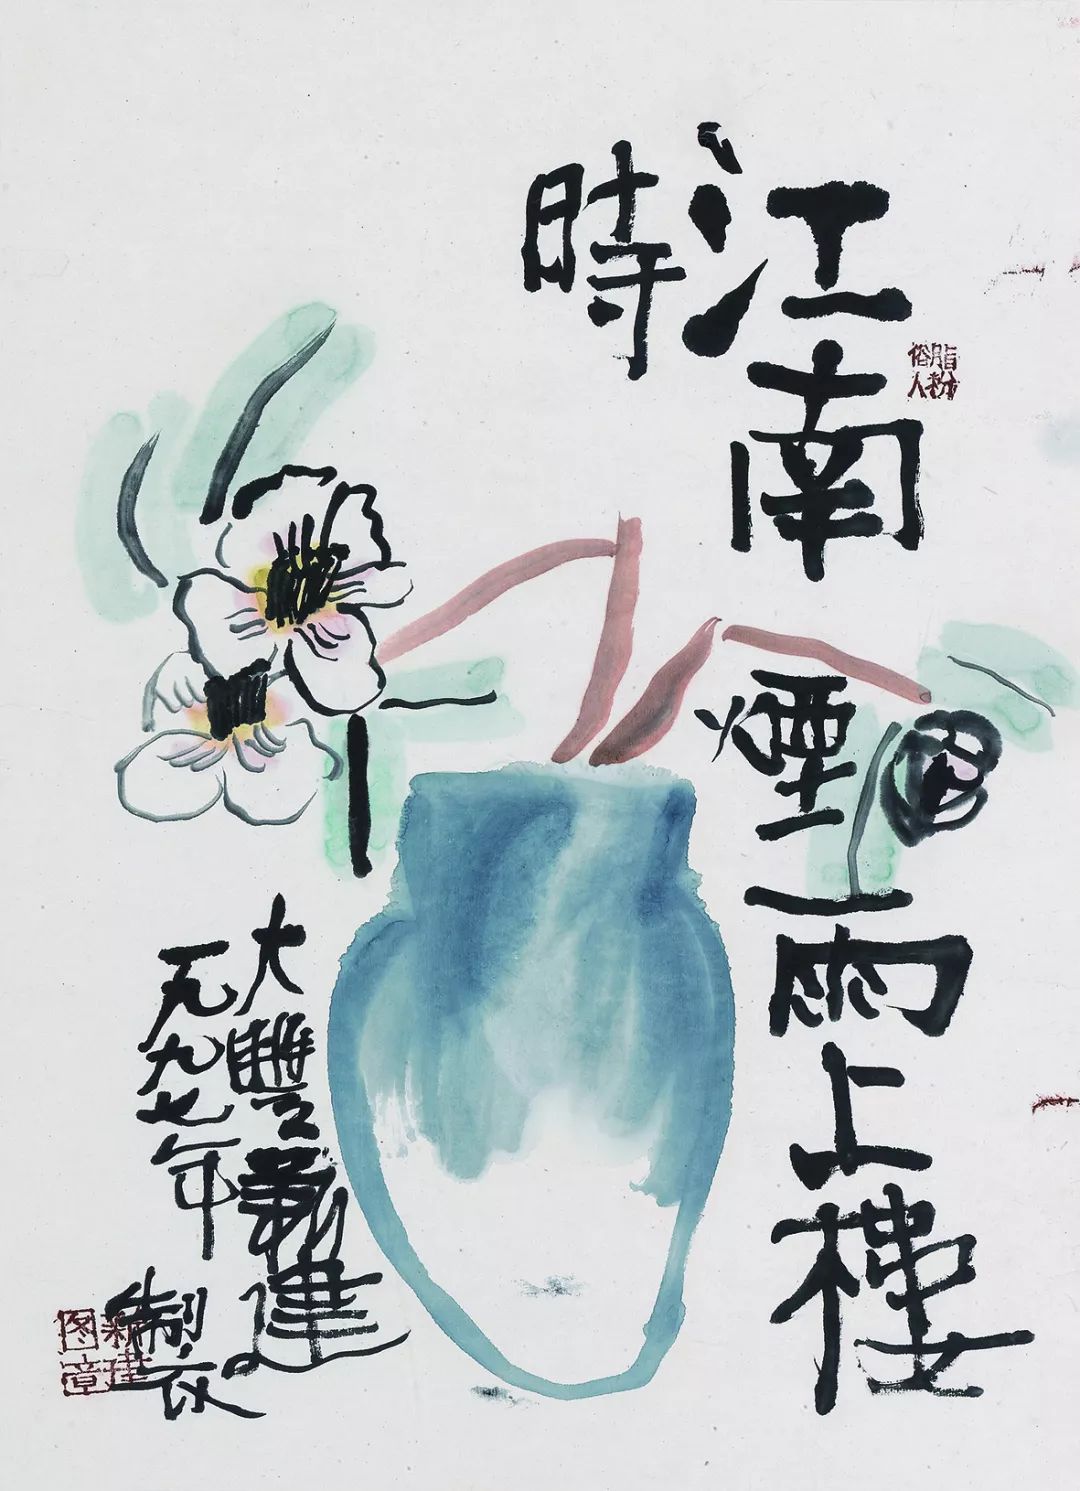 江南煙雨上樓
時
脂粉
俗人
大豐新建
一九九七年
製
新建
图章